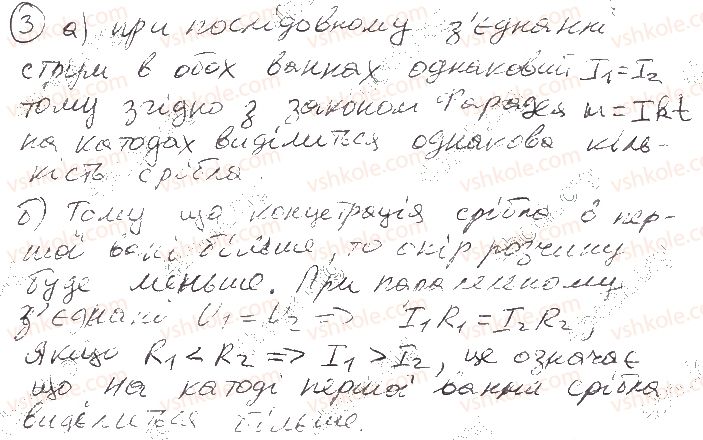 ③ а) при послідовному з'єднанні
струм в обох ваннах однаковий I₁=I₂
тому згідно з законом Фарадея m=Ikt
на катодах виділиться однакова кіль-
кість срібла.
б) Тому що концетрація срібла в пер-
шої ванні більше, то опір розчину
буде меньше. При паралельному
з'єднані U₁=U₂ => I₁R₁=I₂R₂,
якщо R₁<R₂ => I₁>I₂, це означає
що на катоді першої ванни срібла
виделиться більше.